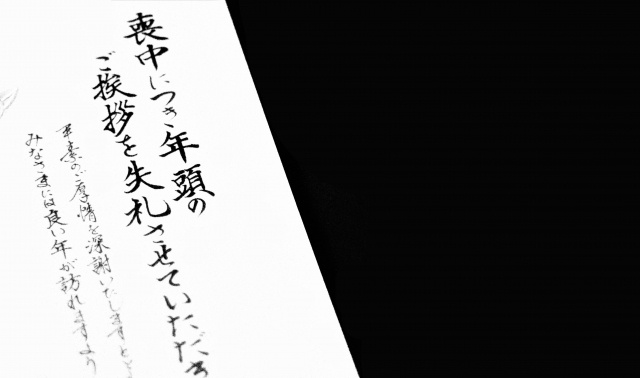 喪中につき年頭の
ご挨拶を失札させていただき
平素のご厚情を深謝いたしますとと
みなさまには良い年が訪れますよう